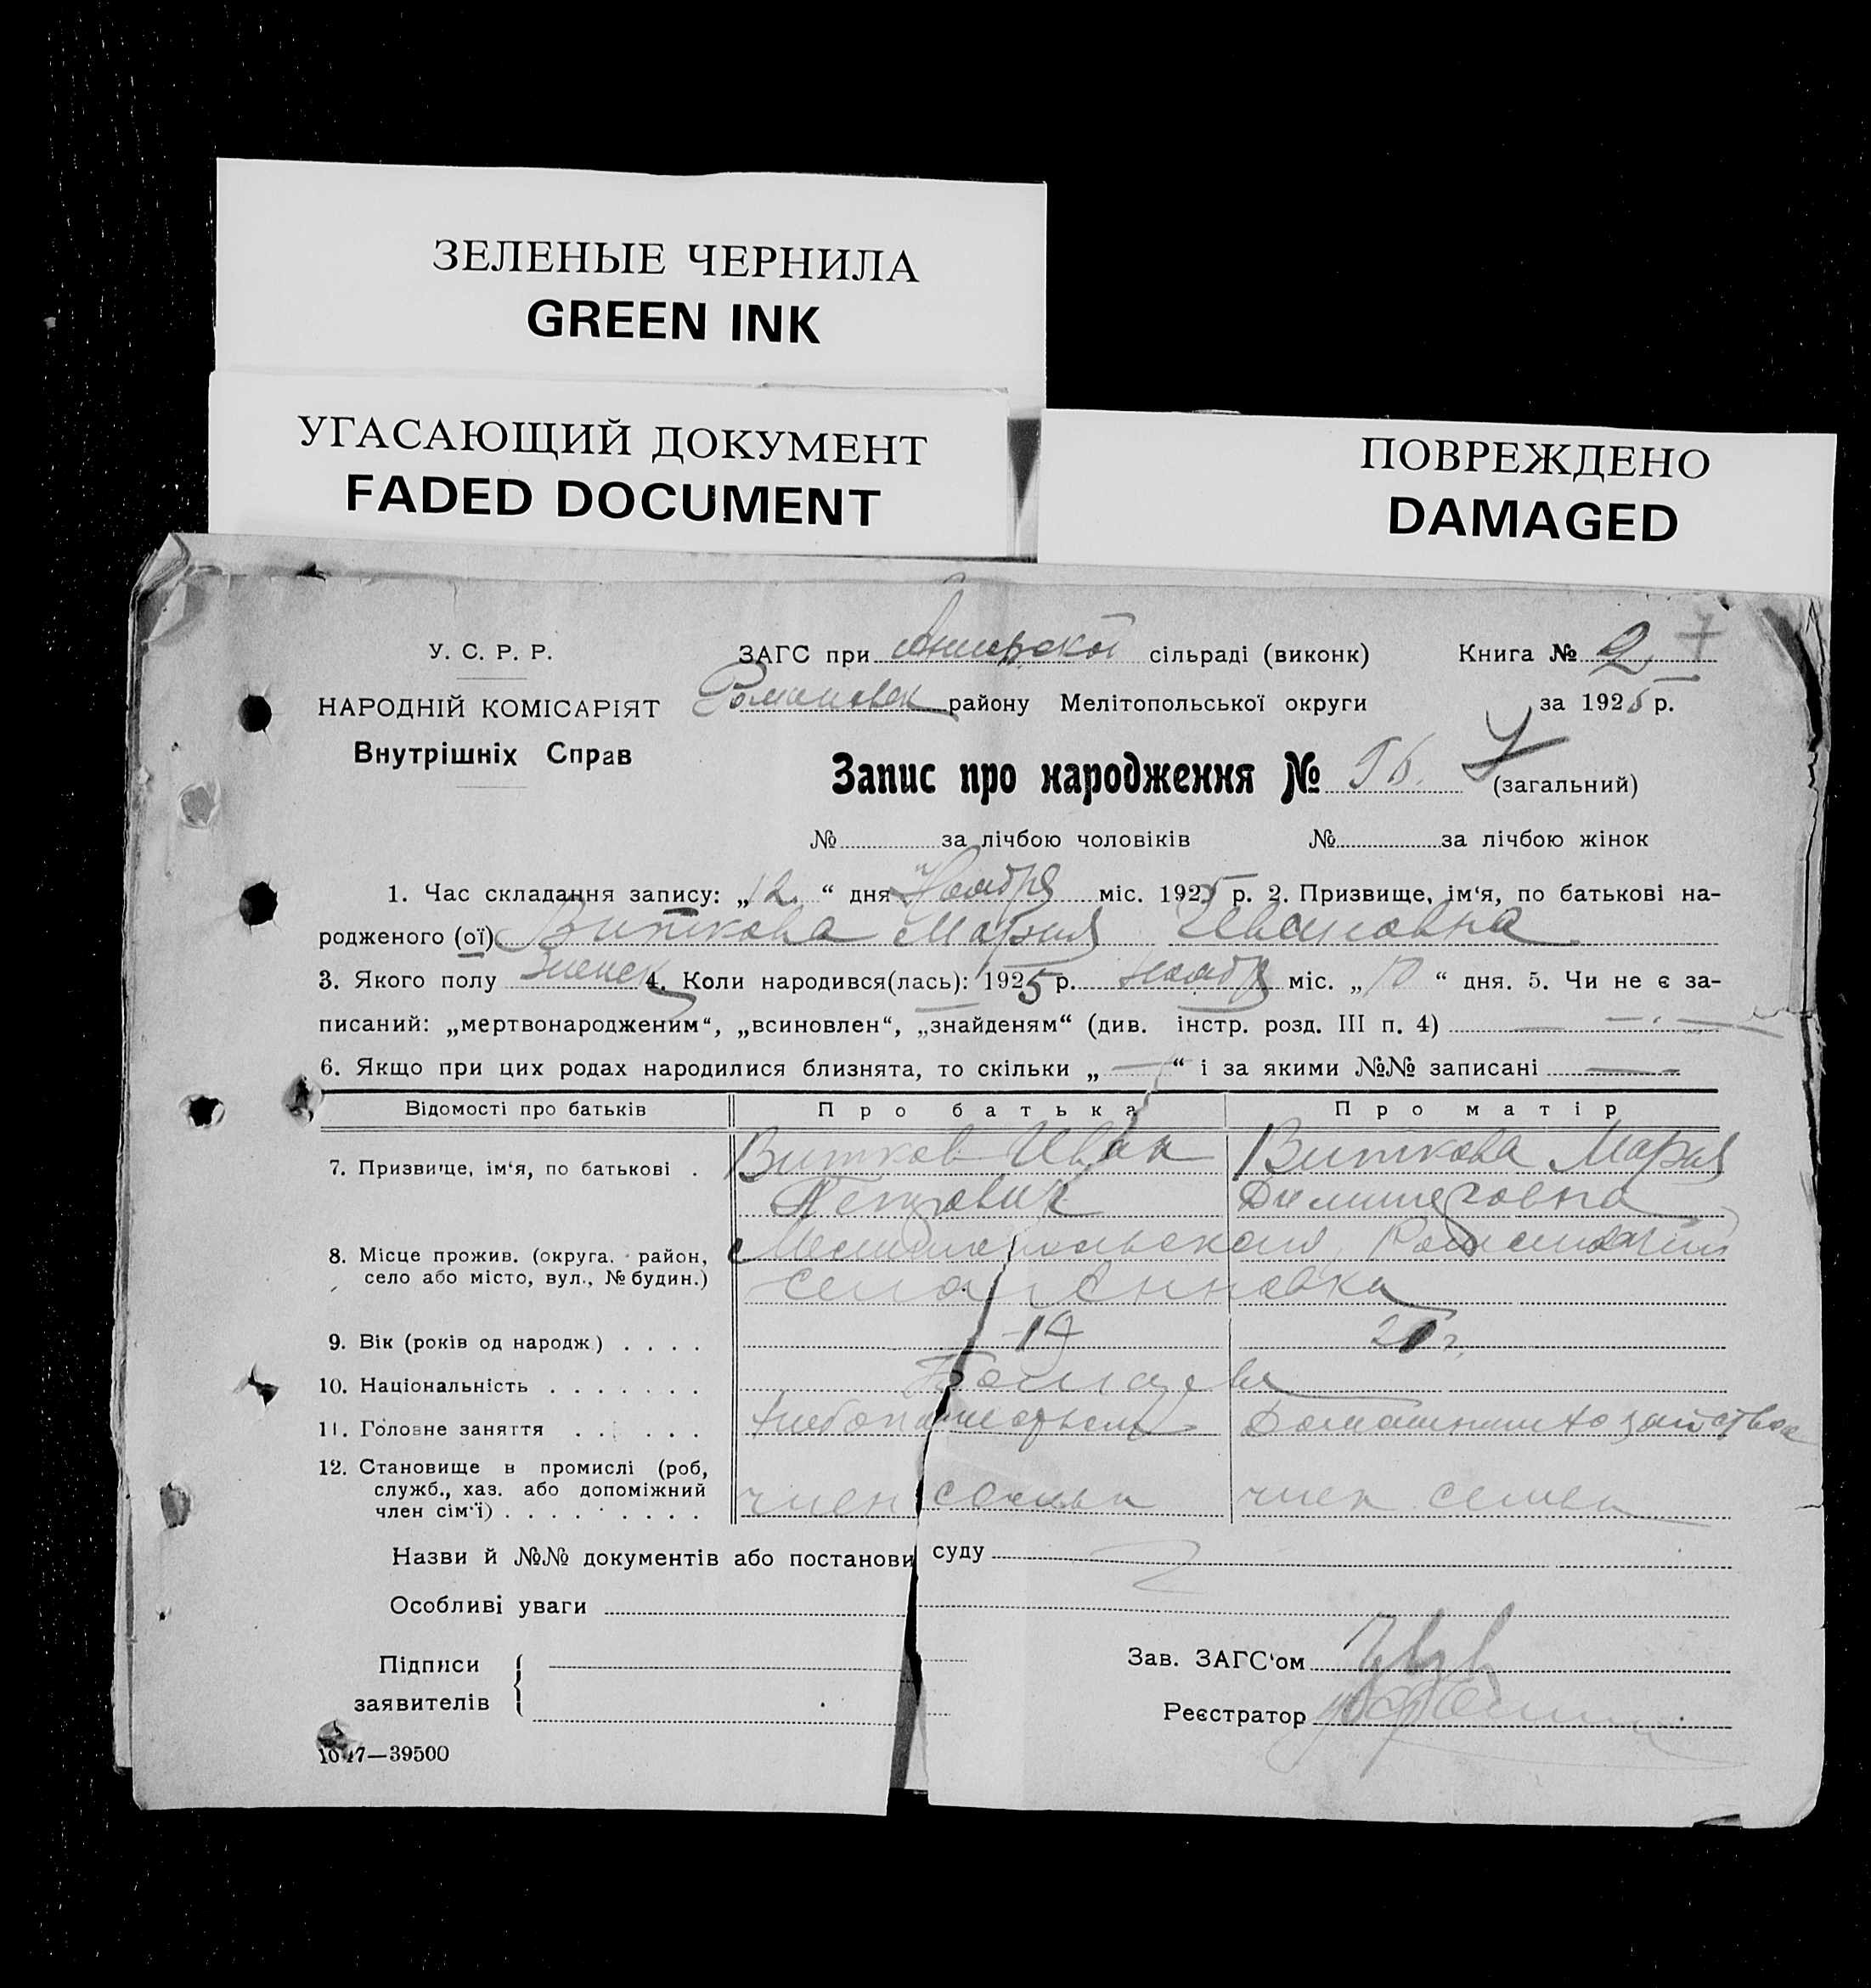 ЗЕЛЕНЫЕ ЧЕРНИЛА
GREEN INK
УГАСАЮЩИЙ ДОКУМЕНТ
FADED DOCUMENT
ПОВРЕЖДЕНО
DAMAGED
У. С. Р. Р.
НАРОДНІЙ КОМІСАРІЯТ
Внутрішніх Справ
ЗАГС при сільраді (виконк) Книга № 2
Романовск району Мелітопольської округи за 1925 р.
Запис про народження № 96. (загальний)
№ за лічбою чоловіків № за лічбою жінок
1. Час складання запису: „12.“ дня Ноября міс. 1925 р. 2. Призвище, ім‘я, по батькові на-
родженого (ої) Виткова Мария Ивановна
3. Якого полу женск 4. Коли народився(лась): 1925 р. ноябр міс. „10“ дня. 5. Чи не є за-
писаний: „мертвонародженим“, „всиновлен“, „знайденям“ (див. інстр. розд. III п. 4) —
6. Якщо при цих родах народилися близнята, то скільки „—“ і за якими №№ записані —
Відомості про батьків Про батька Про матір
7. Призвище, ім‘я, по батькові . Витков Иван Виткова Мария
Петрович Димитровна
8. Місце прожив. (округа. район, Мелитопольской,
село або місто, вул., № будин.) села Анновка
9. Вік (років од народж.) . . . . 19 21 г.
10. Національність . . . . . . . Болгаре
11. Головне заняття . . . . . . Хлебопашество Домашним хозяйством
12. Становище в промислі (роб, член семьи член семьи
служб., хаз. або допоміжний
член сім‘ї) . . . . . . . . .
Назви й №№ документів або постанови суду
Особливі уваги
Підписи
заявителів
Зав. ЗАГС‘ом
Реєстратор
1047—39500